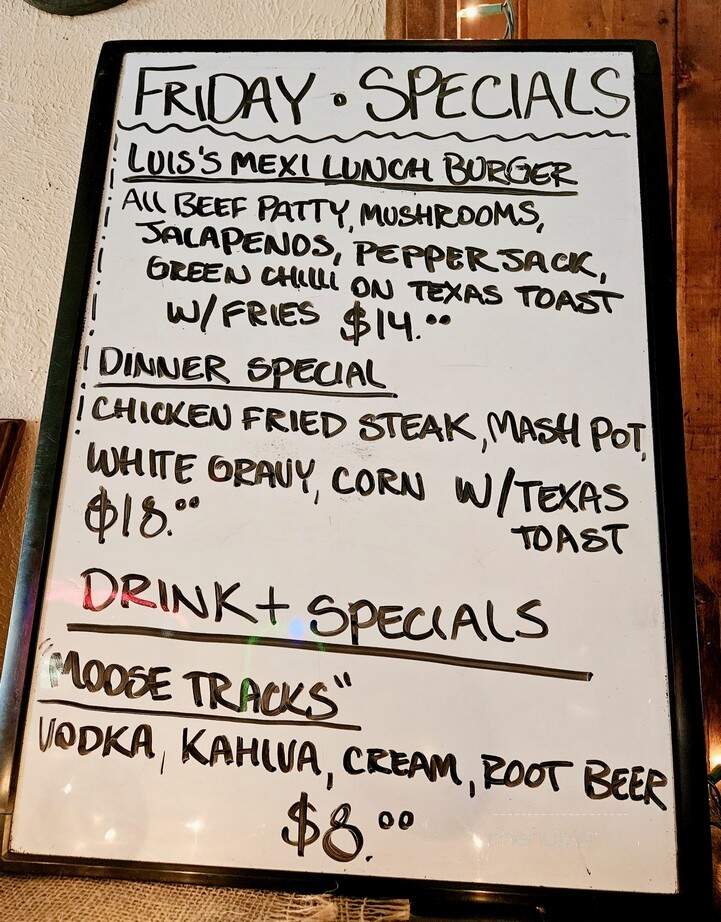 FRIDAY • SPECIALS
LUIS'S MEXI LUNCH BURGER
All BEEF PATTY, MUSHROOMS,
JALAPENOS, PEPPER JACK,
GREEN CHILLI ON TEXAS TOAST
W/FRIES $14.00
DINNER SPECIAL
CHICKEN FRIED STEAK, MASH POT,
WHITE GRAVY, CORN W/TEXAS
TOAST
$18.00
DRINK+ SPECIALS
"MOOSE TRACKS"
VODKA, KAHLUA, CREAM, ROOT BEER
$8.00